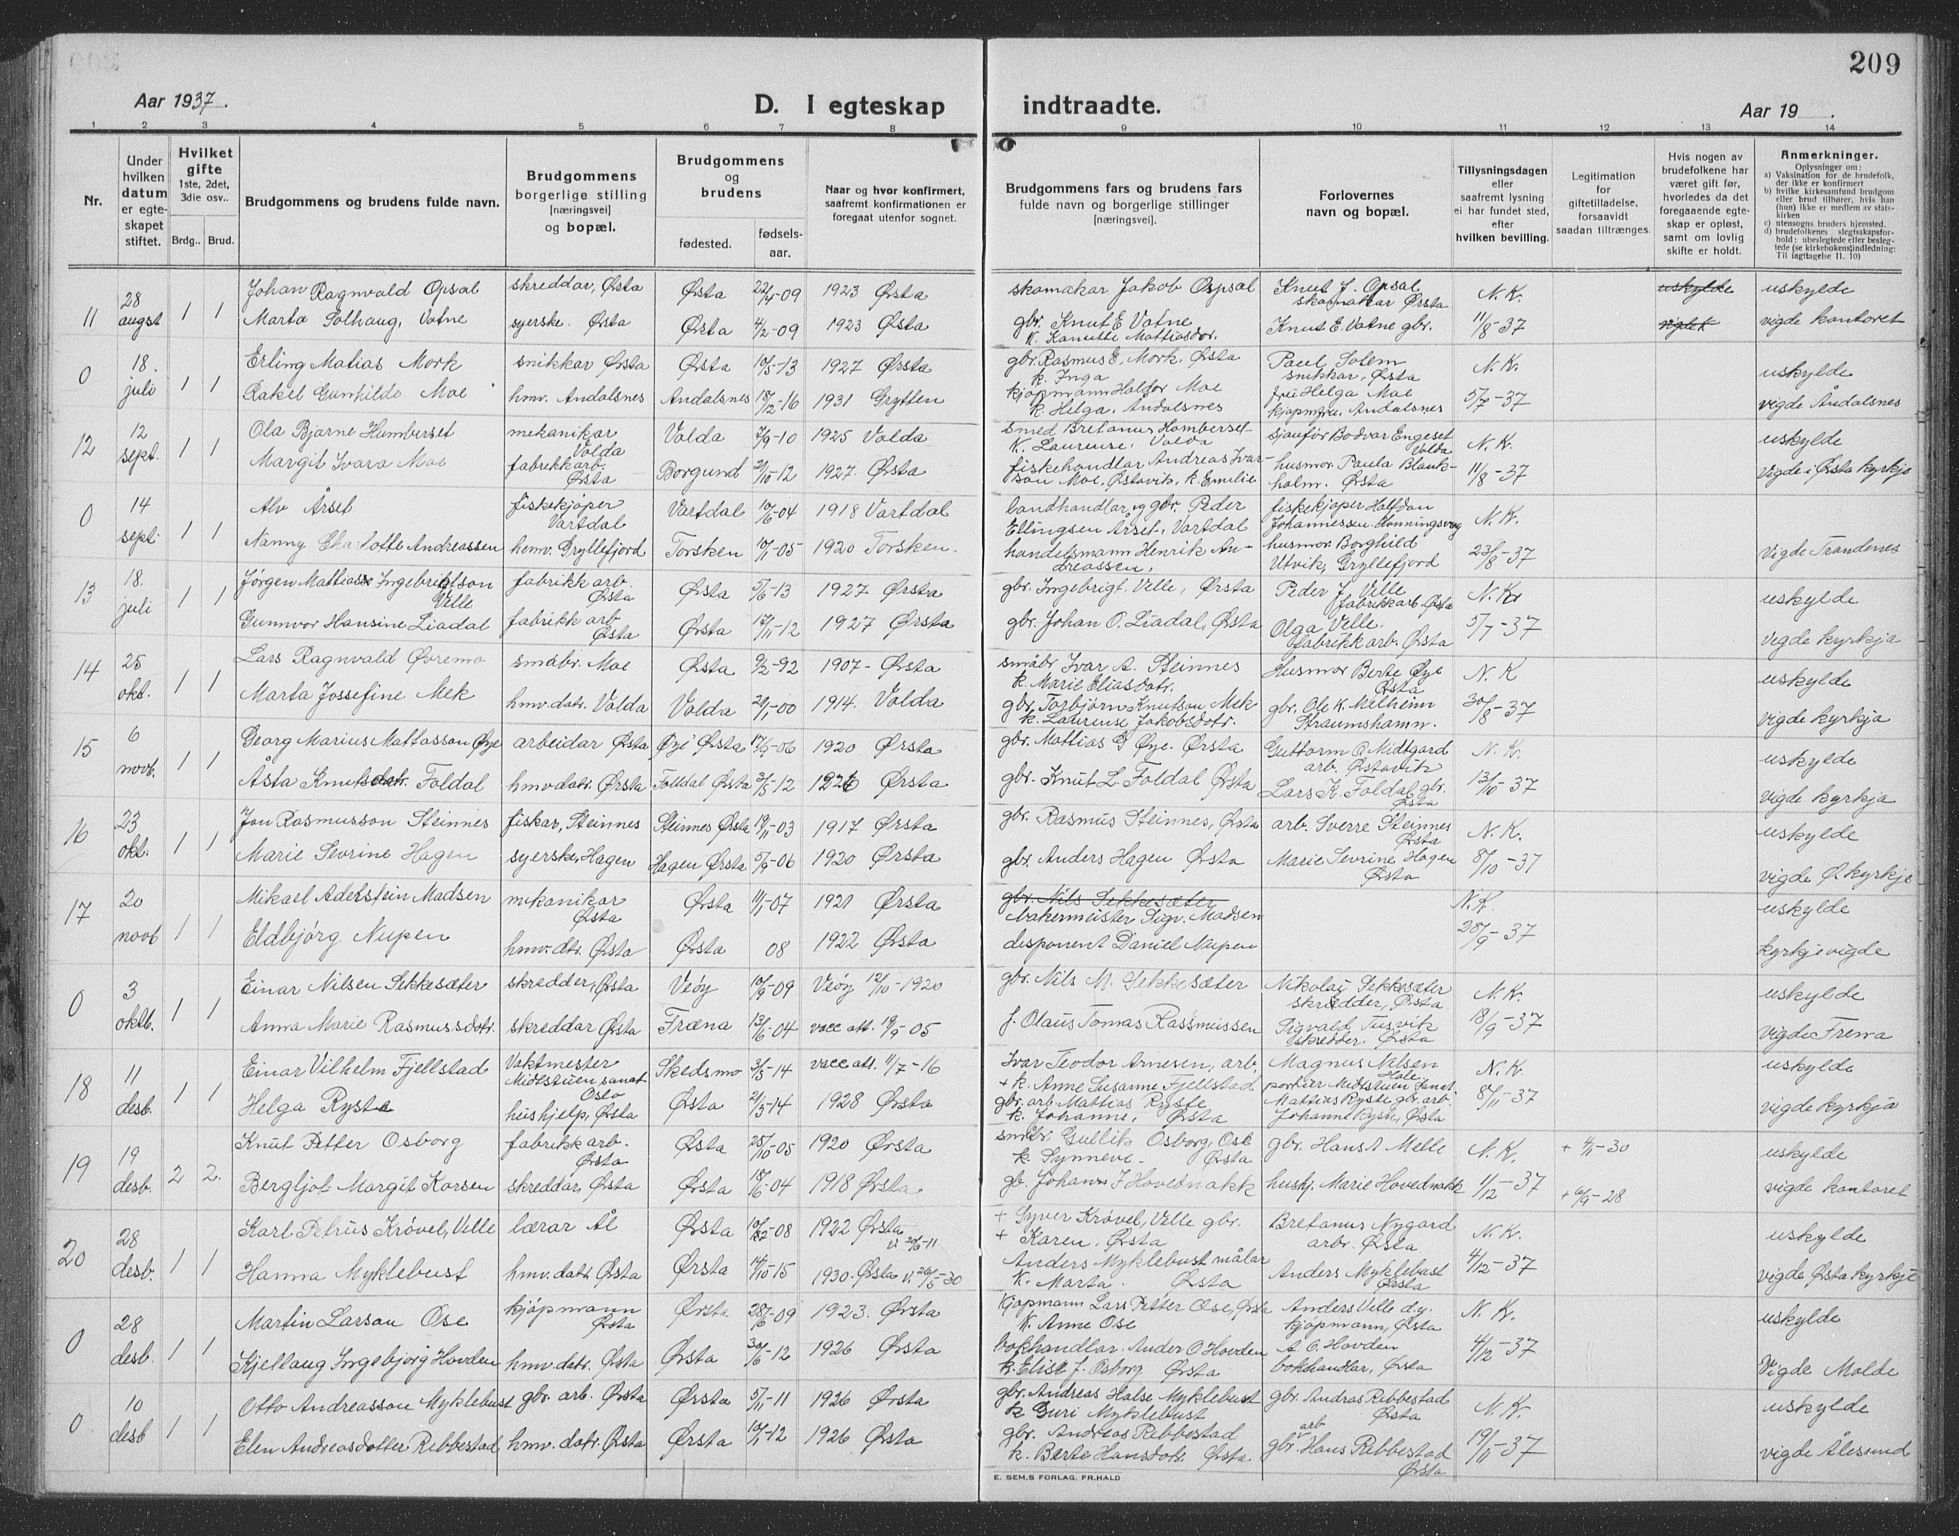 209
Aar 1937.
D. I egteskap indtraadte.
Aar 19
1 2 3 4 5 6 7 8 9 10 11 12 13 14
Nr.
Under hvilken datum er egteskapet stiftet.
Hvilket gifte 1ste, 2det, 3die osv..
Brdg.. Brud.
Brudgommens og brudens fulde navn.
Brudgommens borgerlige stilling [næringsvei] og bopæl.
Brudgommens og brudens
fødested. fødselsaar.
Naar og hvor konfirmert, saafremt konfirmationen er foregaat utenfor sognet.
Brudgommens fars og brudens fars fulde navn og borgerlige stillinger [næringsvei]
Forlovernes navn og bopæl.
Tillysningsdagen eller saafremt lysning ei har fundet sted, efter hvilken bevilling.
Legitimation for giftetilladelse, forsaavidt saadan tiltrænges.
Hvis nogen av brudefolkene har været gift før, hvorledes da det foregaaende egteskap er opløst, samt om lovlig skifte er holdt.
Anmerkninger.
Oplysninger om:
a) Vaksination for de brudefolk, der ikke er konfirmert
b) hvilke kirkesamfund brudgom eller brud tilhører, hvis han (hun) ikke er medlem av statskirken
c) utensogns bruders hjemsted.
d) brudefolkenes slegtsskapsforhold: ubeslegtede eller beslegtede (se kirkebokens indledning: Til iagttagelse II. 10)
11 28 augst 1 1 Johan Ragnvald Opsal skreddar, Ørsta Ørsta 22/4-09 1923 Ørsta skomakar Jakob Opsal Knut J. Opsal skomakar Ørsta N.K. uskylde uskylde
Marta Solhaug, Vatne syerske. Ørsta Ørsta 4/2-09 1923 Ørsta gbr. Knut E Vatne k. Kanutte Mattiasdor. Knut E. Vatne gbr. 11/8-37 vigde kontoret
0 18. juli 1 1 Erling Matias Mork snikkar Ørsta Ørsta 10/5-13 1927 Ørsta gbr. Rasmus E. Mork. Ørsta k. Inga Paul Solem snikkar, Ørsta N.K. uskylde
Rakel Gunhilde Moe hmv. Andalsnes Andalsnes 18/12-16 1931 Grytten kjøpmann Haldor Moe k. Helga, Andalsnes fru Helga Moe Andalsnes 5/7-37 vigde Åndalsnes
12 12 sept. 1 1 Ola Bjarne Humberset mekanikar Volda Volda 7/9-10 1925 Volda smed Bretanus Homberset k. Laurense, Volda sjauför Bodvar Engeset Volda N.K. uskylde
Margit Ivara Moe fabrikkarb. Ørsta Borgund 2/10-12 1927 Ørsta fiskehandlar Andreas Ivarson Moe, Østavik, k. Emilie husmor Paula Blankholm. Ørsta 11/8-37 Vigde i Ørsta kyrkje
0 14 sept. 1 1 Alv Årset fiskekjøper Vartdal Vartdal 10/6-04 1918 Vartdal landhandlar og gbr. Peder Ellingsen Årset, Vartdal fiskekjøper Halfdan Johannessen Honningsvåg N.K.
Nanny Charlotte Andreassen hemv. Gryllefjord Torsken 10/1-05 1920 Torsken. handelsmann Henrik Andreassen, husmor. Borghild Utvik, Gryllefjord 23/8-37 Vigde Trondenes
13 18. juli 1 1 Jørgen Mattias Ingebrigtson Velle fabrikk arb. Ørsta Ørsta 5/6-13 1927 Ørsta gbr. Ingebrigt Velle, Ørsta Peder J Velle fabrikkarb. Ørsta N.K. uskylde
Gunnvor Hansine Liadal fabrikk arb Ørsta Ørsta 12/11-12 1927 Ørsta gbr. Johan O. Liadal, Ørsta Olga Velle. fabrikk arb. Ørsta 5/7-37 vegde kyrkja
14 25 okt. 1 1 Lars Ragnvald Øvremo småbr. Moe Ørsta 9/2-92 1907- Ørsta småbr Ivar A. Steinnes k. Marie Eliasdotr. Husmor Berte Øye Ørsta N.K uskylde
Marta Jossefine Mek hmv.datr. Volda Volda 21/1-00 1914. Volda gbr Torbjørn Knutson Mek k. Laurense Jakobsdotr. gbr. Ole K. Melheim Straumshamn. 30/8-37 vigde kyrkja
15 6 novb. 1 1 Georg Marius Mattasson Øye arbeidar Ørsta Øye Ørsta 17/5-06 1920 Ørsta gbr. Mattias G Øye. Ørsta Guttorm O. Midtgard arb. Østavik N.K. uskylde
Åsta Knutsdotr. Foldal hmv.datr. Ørsta Folldal Ørsta 3/5-12 1926 Ørsta gbr. Knut L. Foldal Ørsta Lars K. Foldal gbr. Ørsta 13/10-37 vigde kyrkja
16 23 okt. 1 1 Jon Rasmusson Steinnes fiskar, Steinnes Steinnes Ørsta 19/11-03 1917 Ørsta gbr. Rasmus Steinnes, Ørsta arb. Sverre Steinnes Ørsta N.K. uskylde
Marie Sevrine Hagen syerske, Hagen Hagen Ørsta 5/9-06 1920 Ørsta gbr. Anders Hagen Ørsta Marie Sevrine Hagen Ørsta 8/10-37 vigde Ø. kyrkje
17 20 novb 1 1 Mikael Adelstein Madsen mekanikar Ørsta Ørsta 11/1-07 1921 Ørsta gbr. Nils Sekkesæter bakermeister Sigv. Madsen N.K. uskylde
Eldbjörg Nupen hmv.dtr. Ørsta Ørsta 08 1922 Ørsta disponent Daniel Nupen 28/9-37 kyrkjevigde
0 3 oktb. 1 1 Einar Nilsen Sekkesæter skredder, Ørsta Veöy 10/9-09 Veöy 12/10-1920 gbr. Nils M. Sekkesæter Nikolai Sekkesæter skredder, Ørsta N.K. uskylde
Anna Marie Rasmussdotr. skreddar Ørsta Træna 13/6-04 vacc att. 19/9-05 f. Olaus Tomas Rassmussen Sigvald Tusvik skredder. Ørsta 18/9-37 vigde Frena
18 11 desb. 1 1 Einar Vilhelm Fjellstad Vaktmester Midtstuen sanat. Oslo Skedsmo 3/5-14 vacc att. 11/7-16 Ivar Teodor Arnesen, arb. + k. Anne Susanne Fjellstad Magnus Nilsen portiær Midtstuen sanat. N.K. uskylde
Helga Ryste heishjelp, Ørsta Ørsta 21/5-14 1928 Ørsta gbr. arb Mattias Ryste k. Johanne, Ørsta Mattias Ryste gbr. arb. Johanne Ryste, Ørsta 8/11-37 vigde kyrkja
19 19 desb. 2 2. Knut Petter Osborg fabrikk arb. Ørsta Ørsta 25/10-05 1920 Ørsta småbr. Gullik Osborg, Ose k. Synneve. Ørsta gbr. Hans A Melle N.K. + 4/1-30 uskylde
Bergljot Margit Korsen skreddar, Ørsta Ørsta 18/6-04 1918 Ørsta. gb. Johans J Hovdenakk huskj. Marie Hovdenakk 1/12-37 + 6/9-28 vigde kontoret
20 28 desb. 1 1 Karl Petrus Krövel, Velle lærar Ål Ørsta 10/12-08 1922 Ørsta v. 20/6-11 + Syver Krövel, Velle gbr. + Karen, Ørsta Bretanus Nygard arbr. Ørsta N.K. uskylde
Hanna Myklebust hmv. datr. Ørsta Ørsta 14/10-15 1930. Ørsta v. 26/5-30 Anders Myklebust målar k. Marta. Ørsta Anders Myklebust Ørsta 4/12-37 vigde Ørsta kyrkje
0 28 desb. 1 1 Martin Larson Ose kjöpmann Ørsta Ørsta 28/6-09 1923. Ørsta Kjöpmann Lars Petter Ose, Ørsta k. Anne Ose Anders Velle d.y. kjöpmann, Ørsta N.K. uskylde
Kjellaug Ingebjörg Hovden hmv. datr. Ørsta Ørsta 30/6-12 1926 Ørsta bokhandlar. Ander O Hovden k. Elise J. Osborg Ørsta A. O. Hovden bokhandlar, Ørsta 4/12-37 Vigde Molde
0 10 desb 1 1 Otto Andreasson Myklebust gbr. arb. Ørsta Ørsta 5/1-11 1926 Ørsta gbr. Andreas Halse Myklebust k. Guri Myklebust gbr. Andras Ribbestad Ørsta N.K. uskylde
Elen Andreasdotter Ribbestad hmv. datr. Ørsta Ørsta 10/1-12 1926 Ørsta gbr. Andreas Ribbestad k. Berte Hansdotr. Ørsta. gbr. arb Hans Ribbestad Ørsta 19/11-37 vigde Ålesund
E. SEM.S FORLAG, FR.HALD